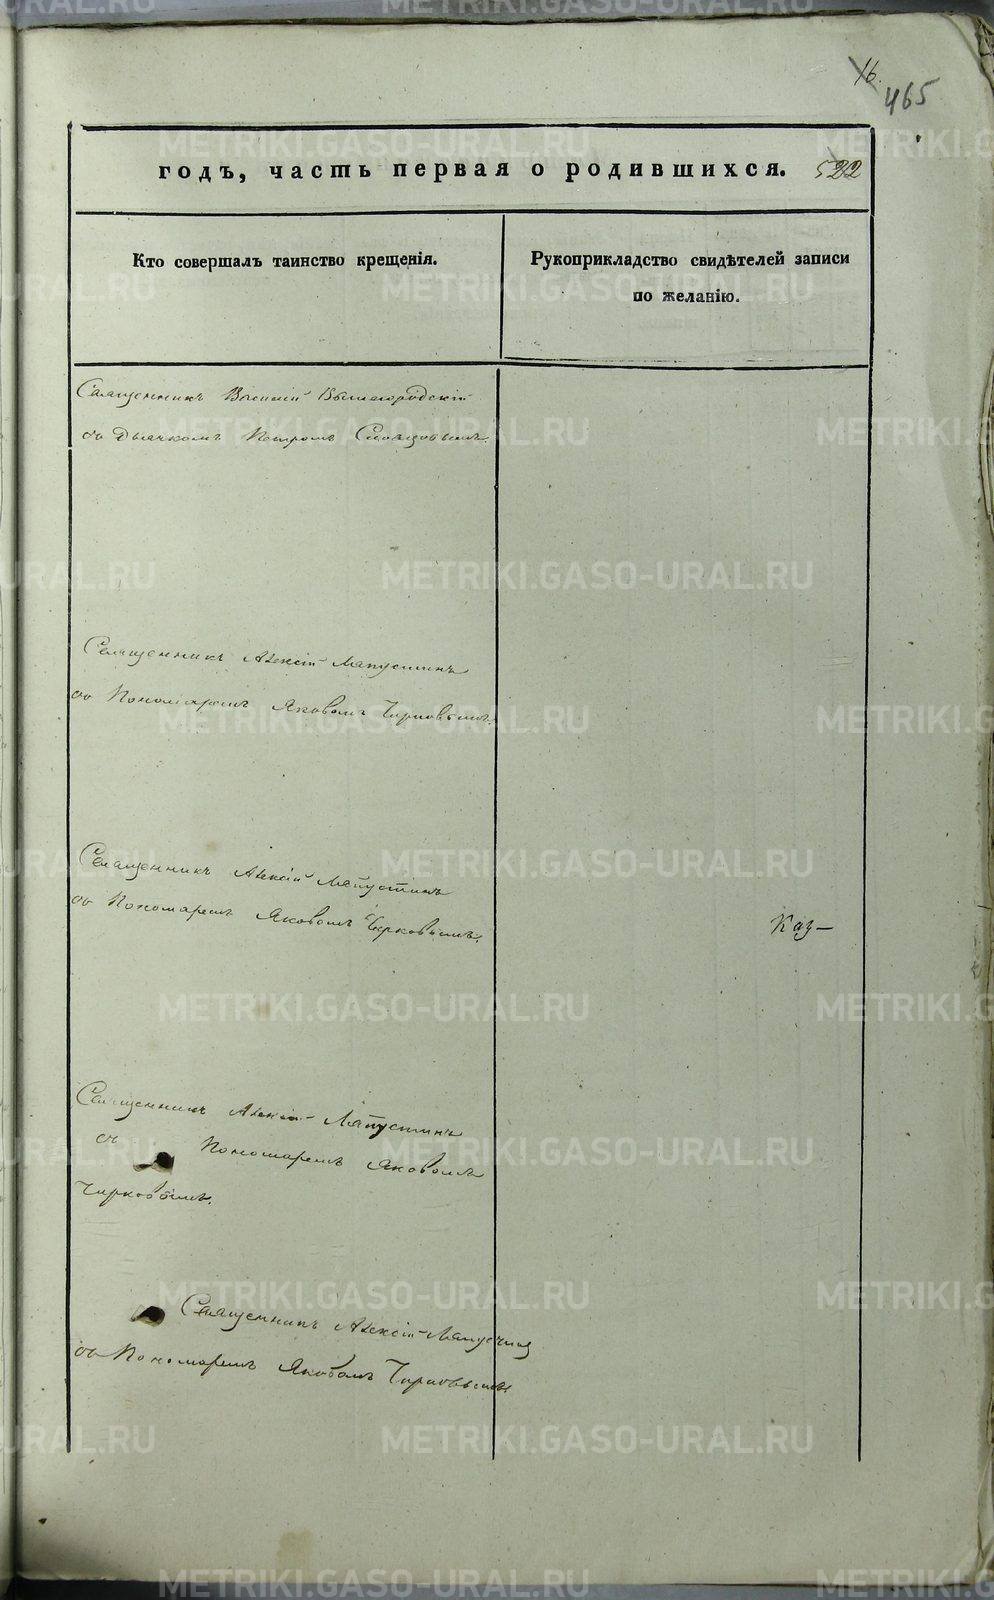 16.
465
годъ, часть первая о родившихся. 522
Кто совершалъ таинство крещенія.
Рукоприкладство свидѣтелей записи
по желанію.
Священникъ Василій Вышегородскій
съ Дьячкомъ Петромъ Словцовымъ.
Священникъ Алексій Ляпустинъ
съ Пономаремъ Яковомъ Чирковымъ.
Священникъ Алексій Ляпустинъ
съ Пономаремъ Яковомъ Чирковымъ.
Каз—
Священникъ Алексій Ляпустинъ
съ Пономаремъ Яковомъ
Чирковымъ.
Священникъ Алексій Ляпустинъ
съ Пономаремъ Яковомъ Чирковымъ
METRIKI.GASO-URAL.RU